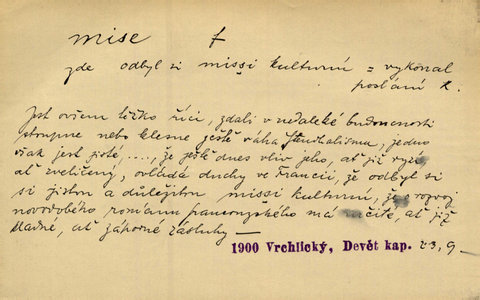 mise f
zde odbyl si missi kulturní = vykonal
poslání k.
Jest ovšem těžko říci, zdali v nedaleké budoucnosti
stoupne nebo klesne ještě váha Stendhalismu, jedno
však jest jisté, ...., že ještě dnes vliv jeho, ať již
ať veličený, ovládá duchy ve Francii, že odbyl si
si jistou a důležitou missi kulturní, že o rozvoj
novodobého románu francouzského má určité, ať již
kladné, ať záporné zásluhy —
1900 Vrchlický, Devět kap. 23, 9.